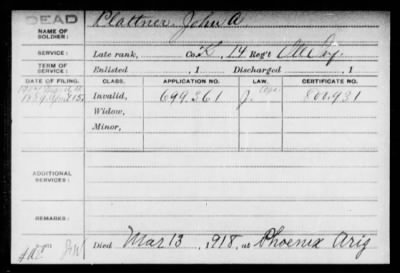 DEAD
NAME OF SOLDIER:
Plattner, John A
SERVICE:
Late rank, Co. K, 14 Reg't
TERM OF SERVICE:
Enlisted , 1 Discharged , 1
DATE OF FILING. CLASS. APPLICATION NO. LAW. CERTIFICATE NO.
Invalid, 699.361 J. 800.931
Widow,
Minor,
ADDITIONAL SERVICES:
REMARKS:
Died Mar 13, 1918, at Phoenix Ariz